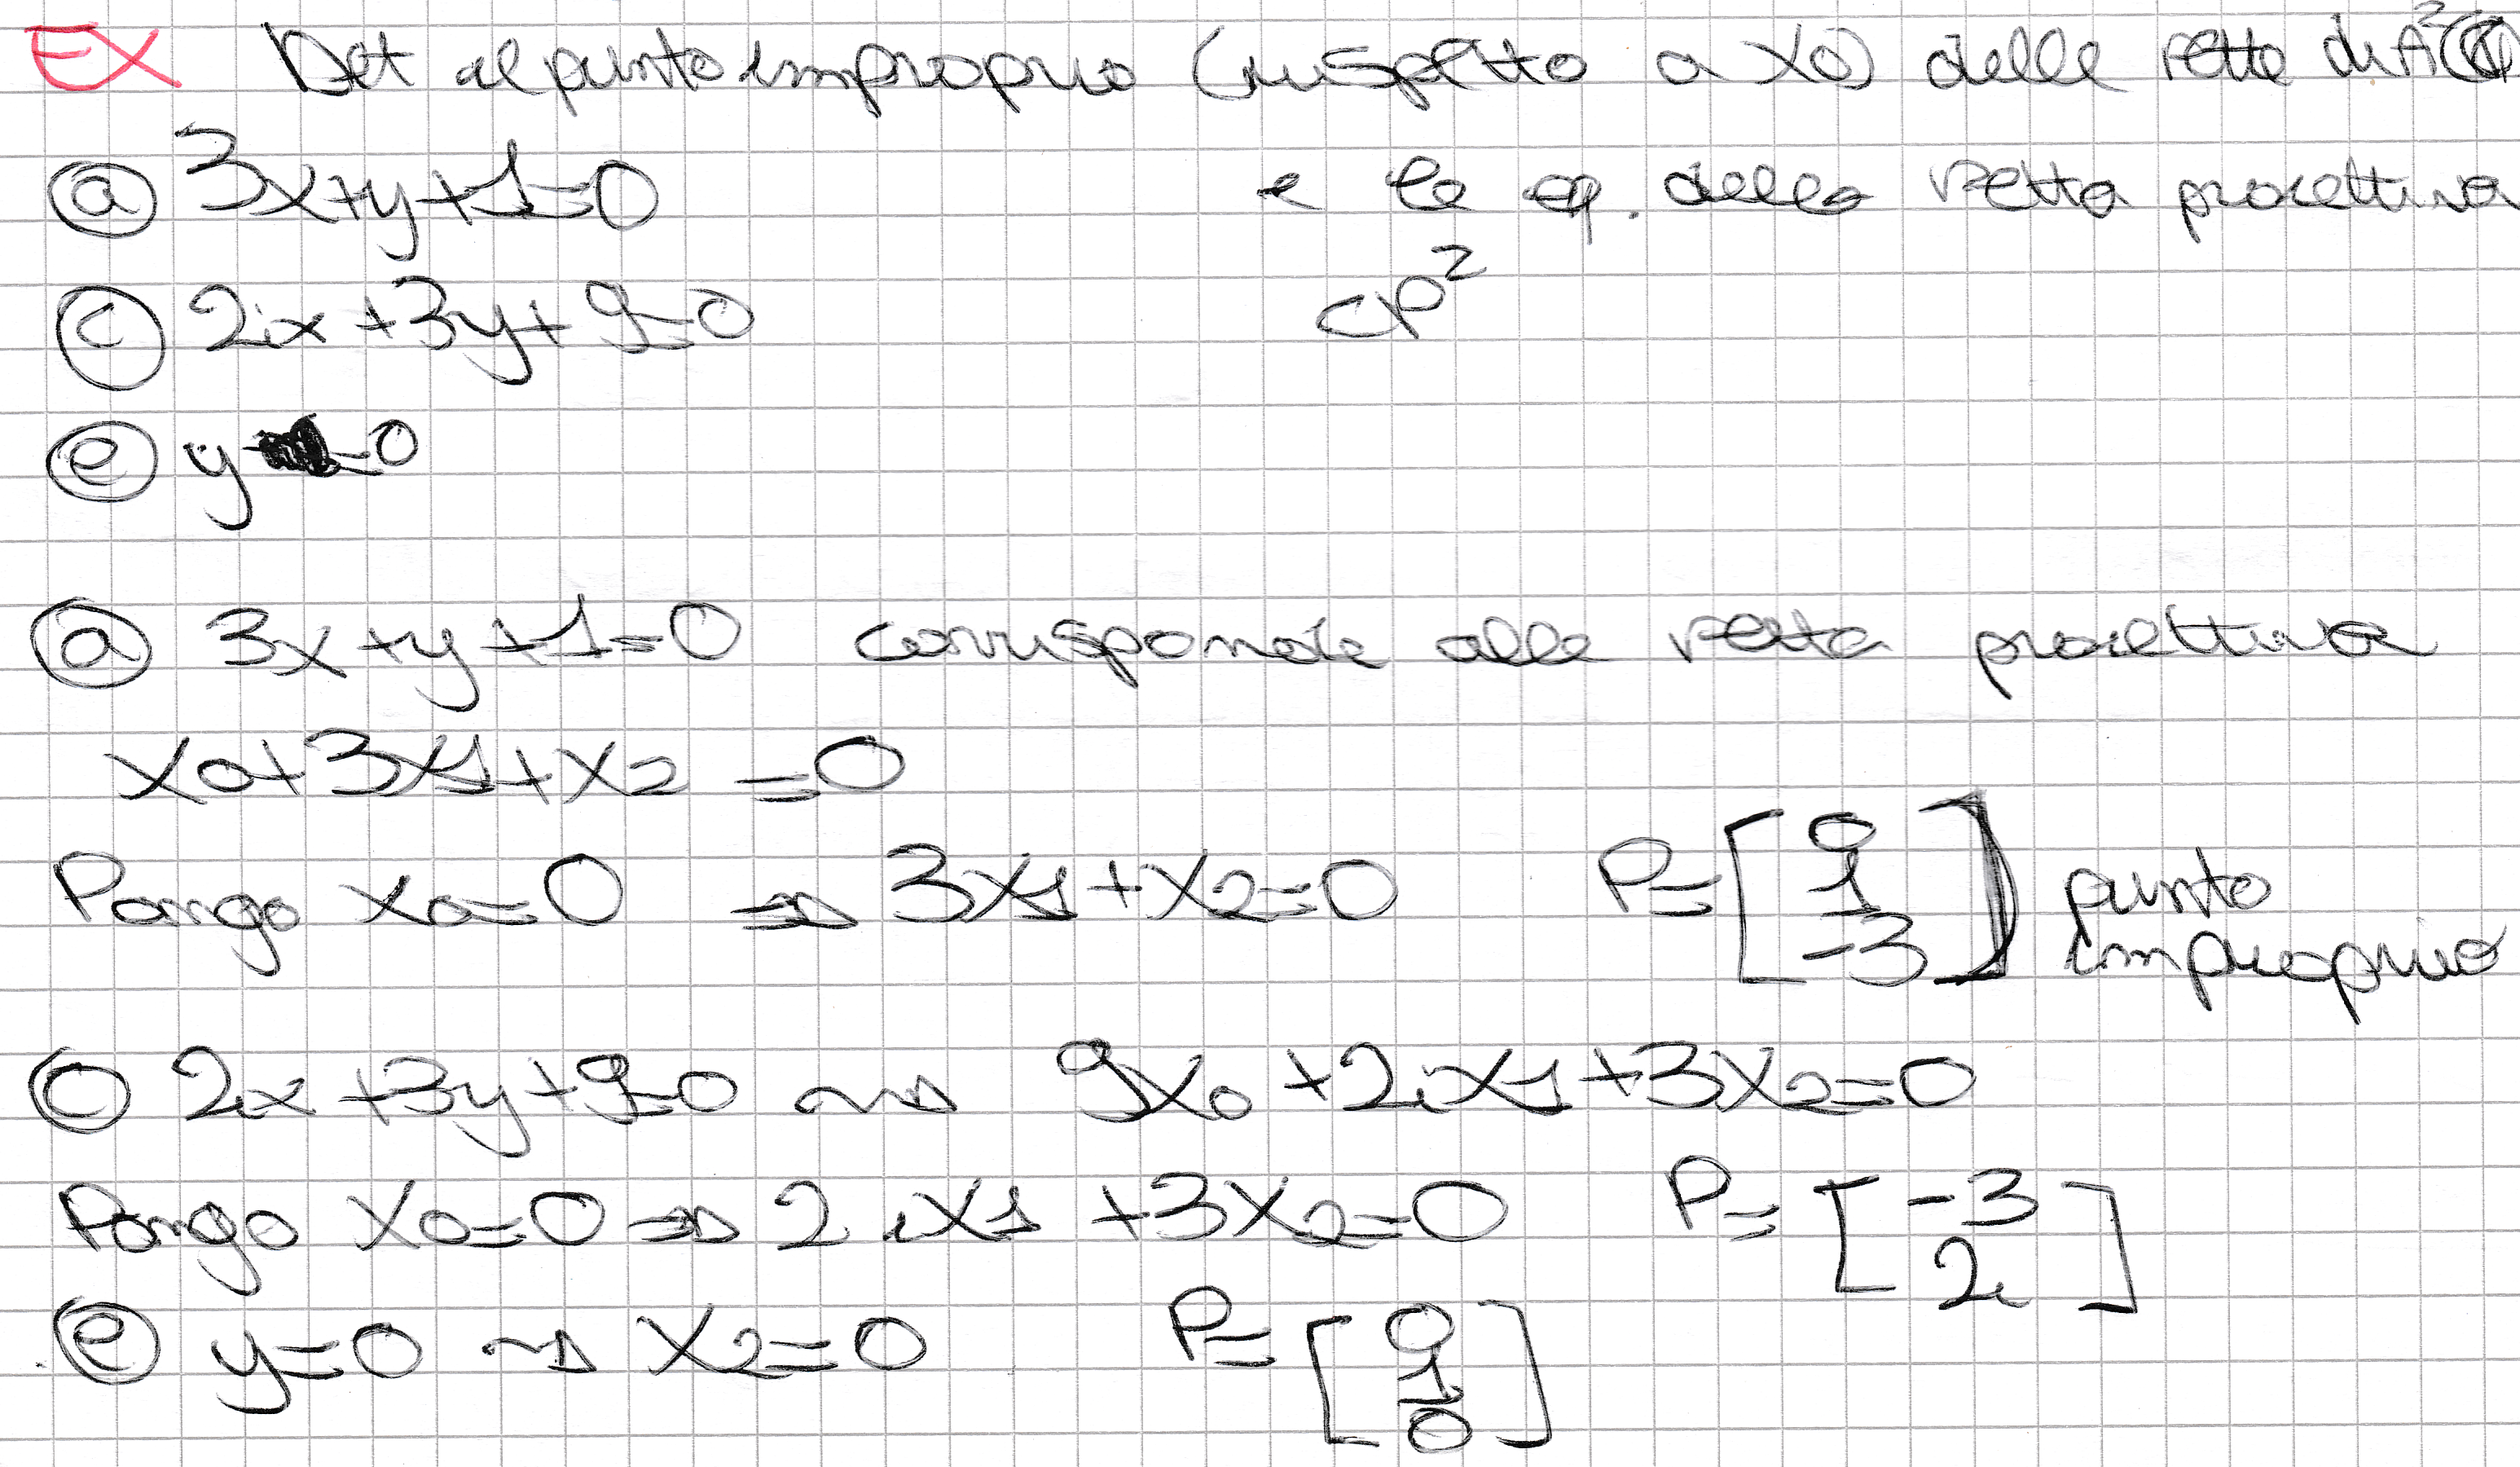 EX Det il punto improprio (rispetto a x0) delle rette di A²(C)
ⓐ 3x+y+1=0 e le eq. della retta proiettiva
ⓒ 2ix+3y+9=0 CP²
ⓔ y=0
ⓐ 3x+y+1=0 corrisponde alla retta proiettiva
x0+3x1+x2=0
Pongo x0=0 ⇒ 3x1+x2=0 P=[0 1 -3] punto improprio
ⓒ 2ix+3y+9=0 ⇝ 9x0+2ix1+3x2=0
Pongo x0=0 ⇒ 2ix1+3x2=0 P=[-3 2i]
ⓔ y=0 ⇝ x2=0 P=[0 1 0]